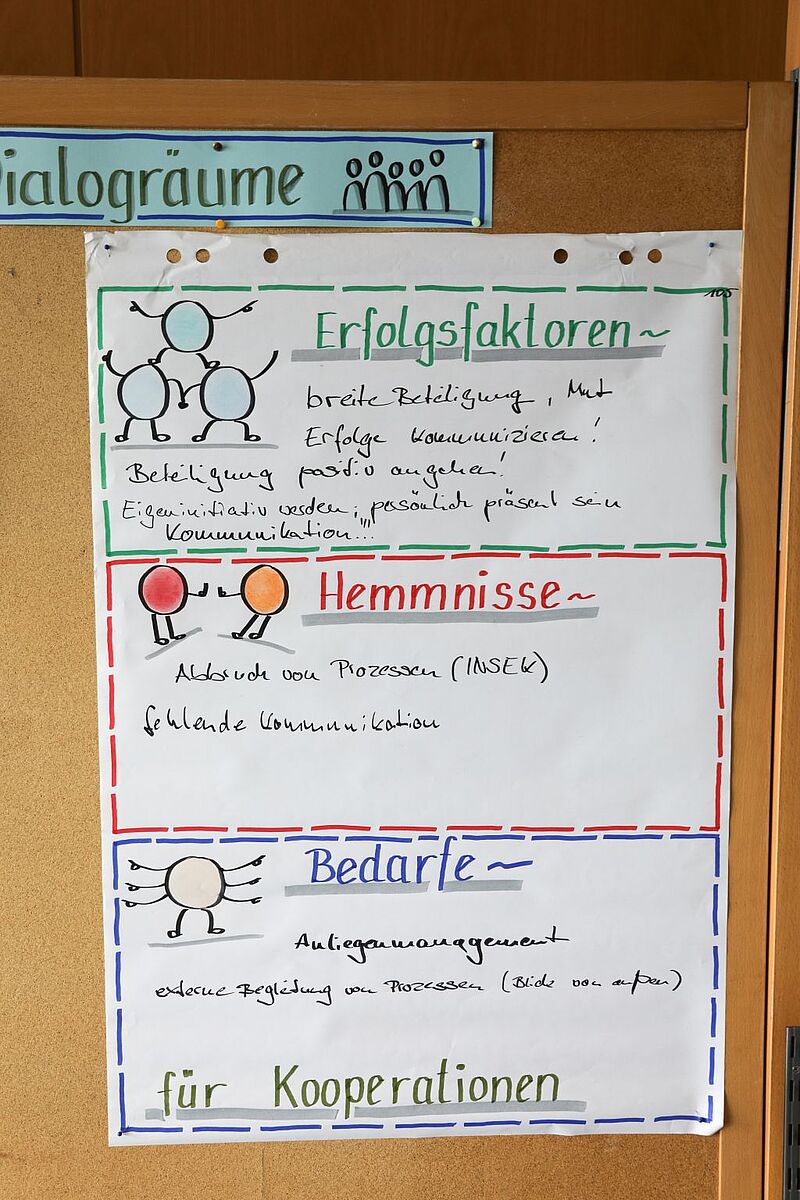 Dialogräume
105
Erfolgsfaktoren~
breite Beteiligung, Mut
Erfolge kommunizieren!
Beteiligung positiv angehen!
Eigeninitiativ werden; persönlich präsent sein
Kommunikation!!!
Hemmnisse~
Abbruch von Prozessen (INSEK)
fehlende Kommunikation
Bedarfe~
Anliegenmanagement
externe Begleitung von Prozessen (Blick von außen)
für Kooperationen